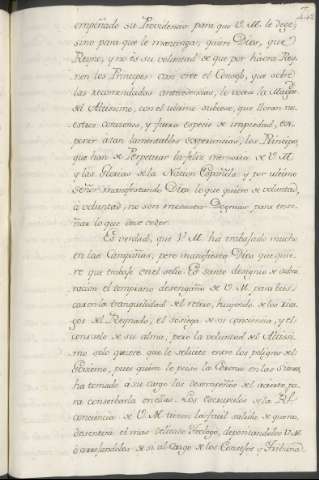 7
empeñado su Providencia para que V. M. le deje,
sino para que le mantenga; quiere Dios, que
Reyne, y no es su voluntad de que por haora Rey-
nen los Principes con cree el Consejo, que sobre
las recomendadas providencias, lo vocea la Magd.
del Altisimo, con el ultimo subceso, que lloran nu-
estros corazones, y fuera especie de impiedad, es-
perar a tan lamentables experiencias, los Principes
que han de Perpetuar la feliz memoria de V. M.
y las Glorias de la Nacion Española; y por ultimo
Señor manifestando Dios lo que quiere de voluntad,
à voluntad, no son necesarios para ense-
ñar lo que deve ceder.
Es verdad, que V. M. ha trabajado mucho
en las Campañas, pero manifiesta Dios que quie-
re que trabaje en el solio. Es santo designio de sobre-
razon el temprano desengaño de V. M. para bus-
car en la tranquilidad del retiro, huyendo de los ries-
gos del Reynado, el sosiego de su conciencia, y el
consuelo de su alma, pero la voluntad del Altisi-
mo solo quiere que le solicite entre los peligros del
Govierno, pues quien le puso la Corona en las Sienes,
ha tomado a su cargo las del acierto pa-
ra conservarla en ellas. Los escrupulos de la Rl.
conciencia de V. M. tienen la facil salida de quien,
desentra el mas delicado Theologo, deponiendolos V. M.
ò cargandolos de si al cargo de los Consejos y Tribuna-